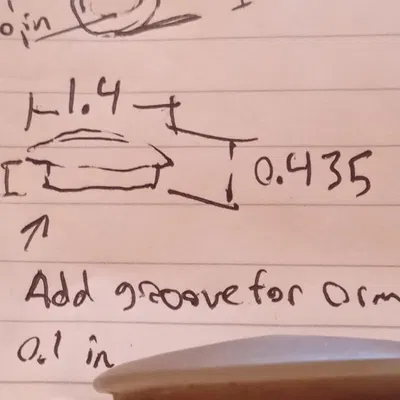 0,in
1.4
0.435
Add groove for
0.1 in